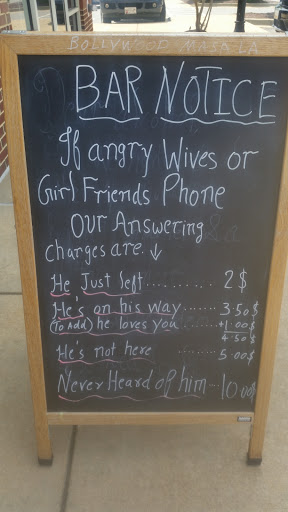 BOLLYWOOD MASALA
BAR NOTICE
If angry Wives or
Girl Friends Phone
OUR Answering
charges are. ↓
He Just left......... 2$
He's on his way....... 3.50$
(To Add) he loves you..... +1.00$
4.50$
He's not here ......... 5.00$
Never Heard of him... 10.00$